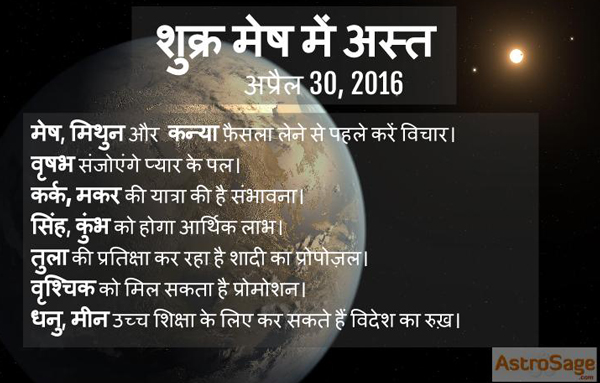 शुक्र मेष में अस्त
अप्रैल 30, 2016
मेष, मिथुन और कन्या फ़ैसला लेने से पहले करें विचार।
वृषभ संजोएंगे प्यार के पल।
कर्क, मकर की यात्रा की है संभावना।
सिंह, कुंभ को होगा आर्थिक लाभ।
तुला की प्रतिक्षा कर रहा है शादी का प्रोपोज़ल।
वृश्चिक को मिल सकता है प्रोमोशन।
धनु, मीन उच्च शिक्षा के लिए कर सकते हैं विदेश का रुख़।
AstroSage
.com